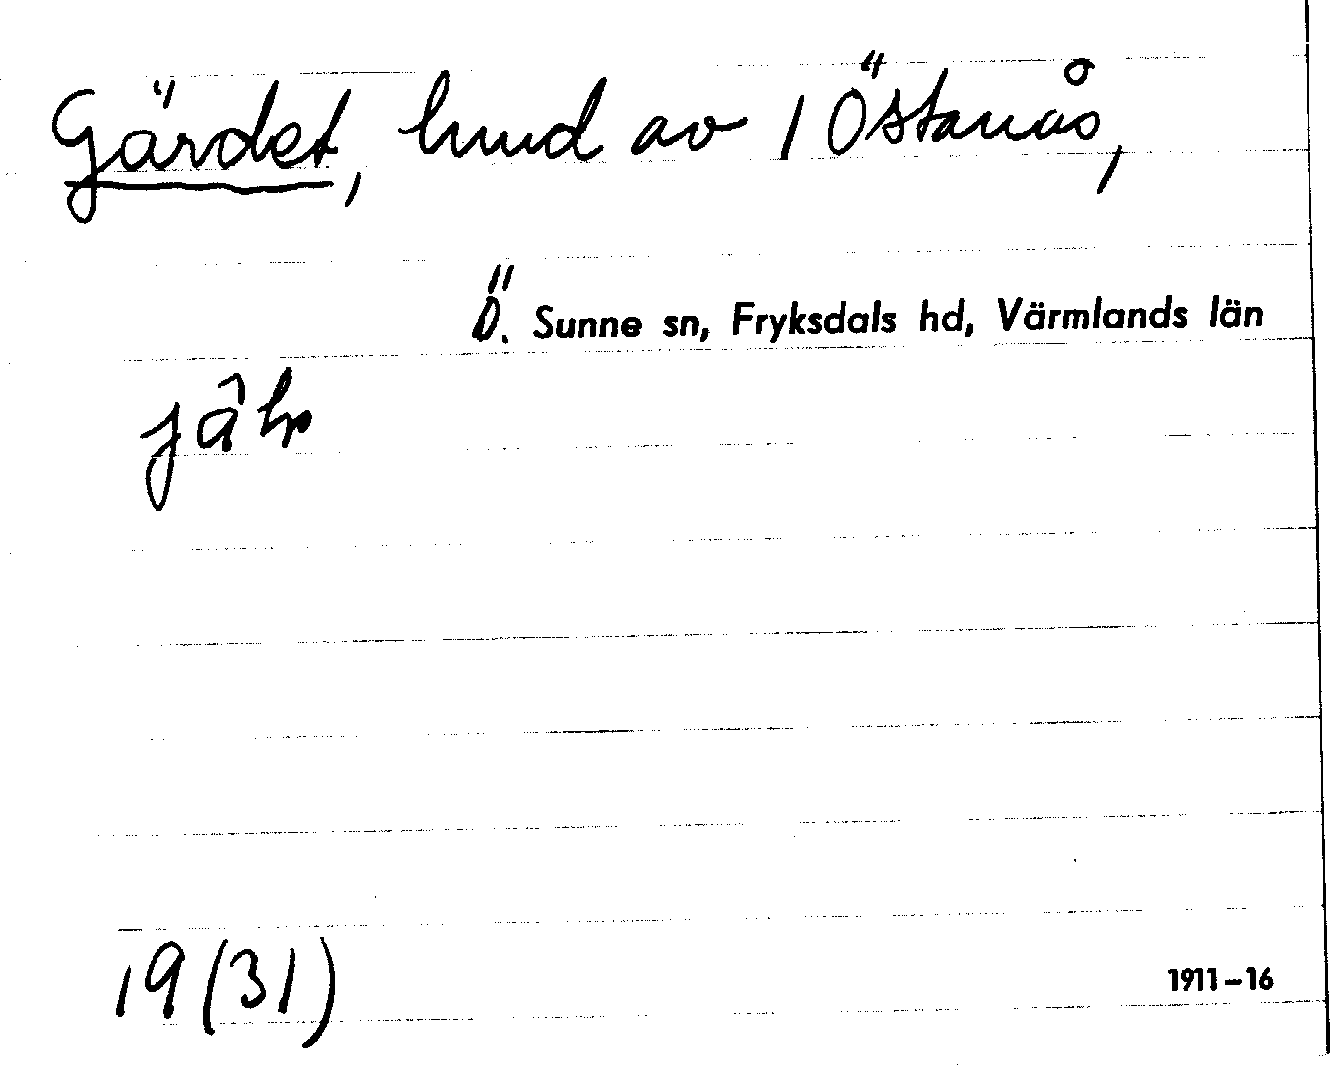 Gärdet, hmd av 1 Östanås,
Ö. Sunne sn, Fryksdals hd, Värmlands län
jâlr
19 (31)
1911-16